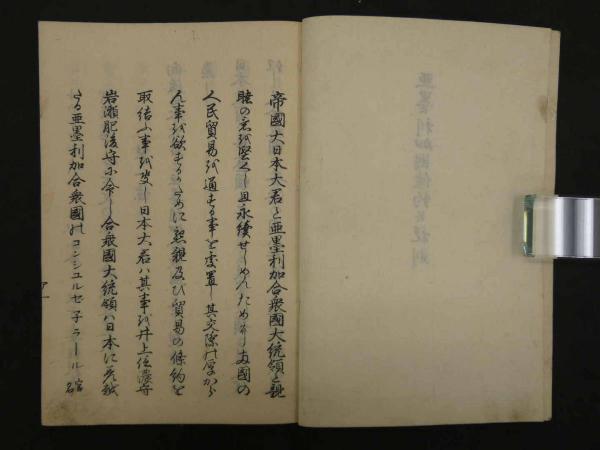 帝國大日本大君と亜墨利加合衆國大統領と親
睦の意を堅くし且永續せしめんために両國の
人民貿易を通する事を處置し其交際の厚から
ん事を欲するかために懇親及ひ貿易の條約を
取結ふ事を決し日本大君ハ其事を井上信濃守
岩瀬肥後守に命し合衆國大統領ハ日本に差越
たる亜墨利加合衆國のコンシユルセ子ラール
亜墨利加國條約並税則